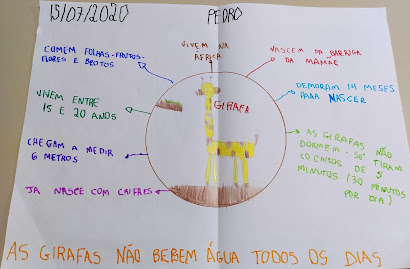 15/07/2020
PEDRO
COMEM FOLHAS-FRUTOS-
FLORES E BROTOS
VIVEM NA
ÁFRICA
NASCEM NA BARRIGA
DA MAMÃE
DEMORAM 14 MESES
PARA NASCER
VIVEM ENTRE
15 E 20 ANOS
GIRAFA
CHEGAM A MEDIR
6 METROS
AS GIRAFAS NÃO
DORMEM - SÓ TIRAM
COCHILOS DE 5
MINUTOS (30 MINUTOS
POR DIA)
JA NASCE COM CHIFRES
AS GIRAFAS NÃO BEBEM ÁGUA TODOS OS DIAS